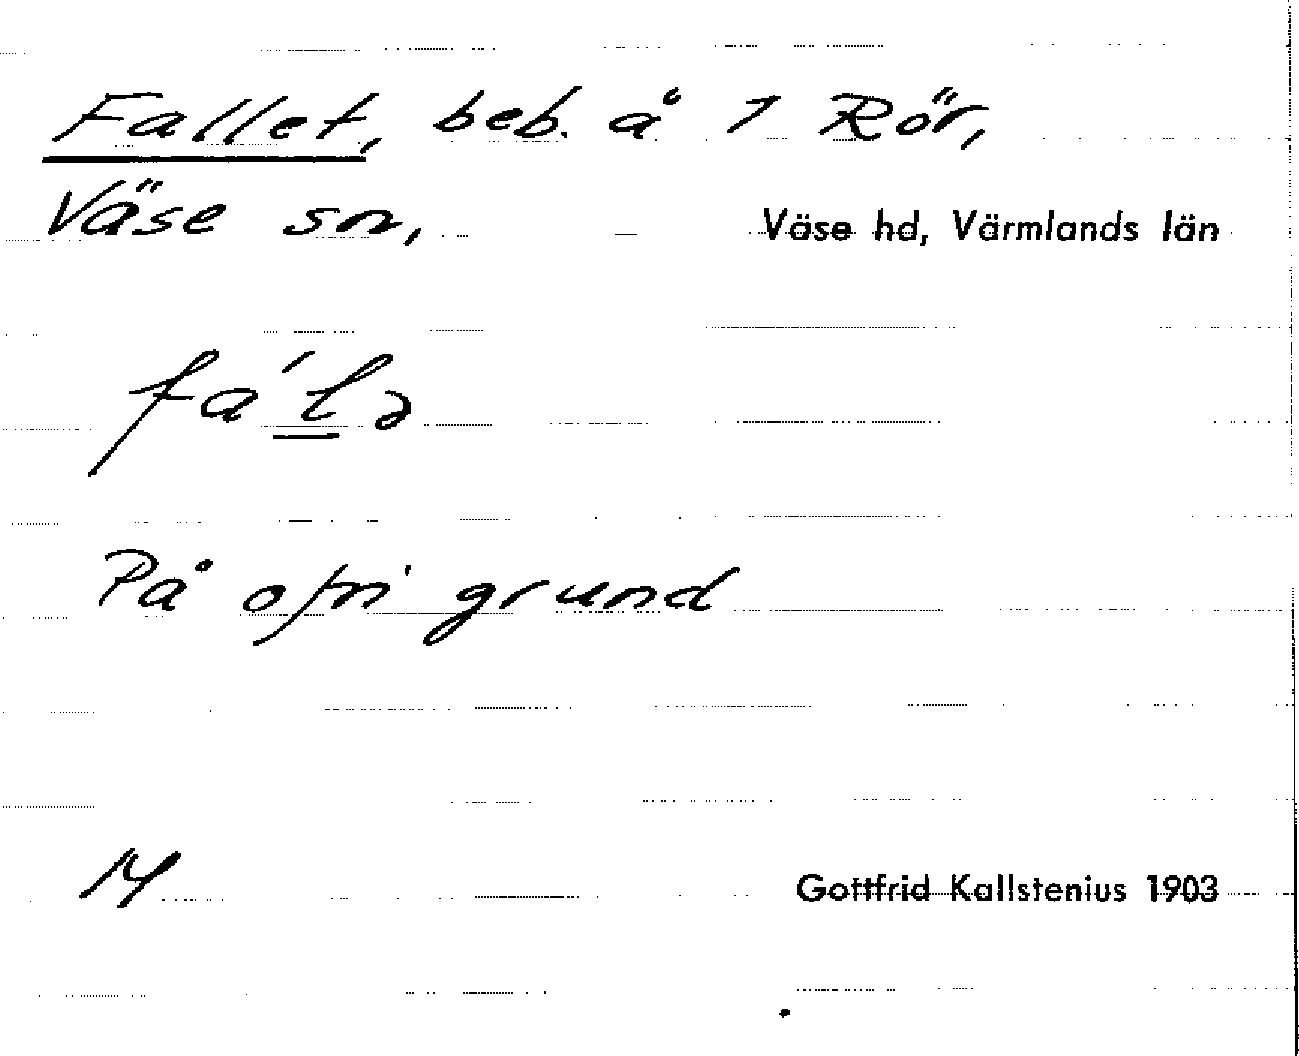 Fallet, beb. å 1 Rör,
Väse sn, Väse hd, Värmlands län
fa´lə
På ofri grund
14
Gottfrid Kallstenius 1903